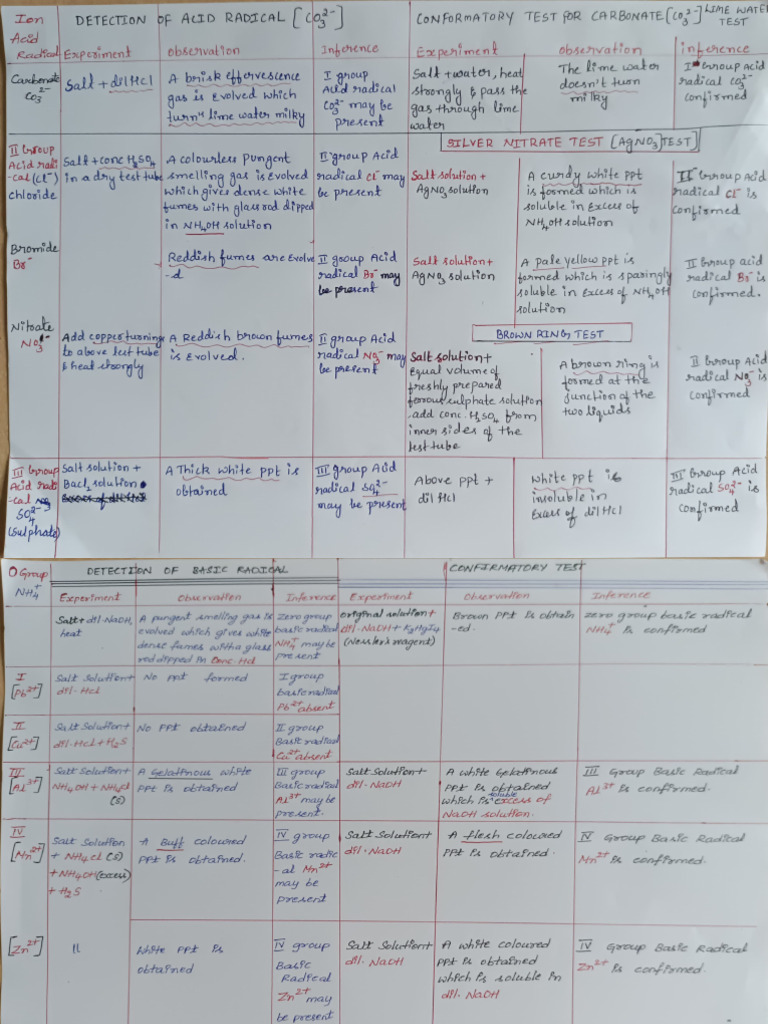 Ion
Acid
Radical
DETECTION OF ACID RADICAL [CO₃²⁻]
CONFORMATORY TEST FOR CARBONATE [CO₃²⁻] LIME WATER
TEST
Experiment
Observation
Inference
Experiment
observation
inference
Carbonate
CO₃²⁻
Salt + dil HCl
A brisk effervescence
gas is Evolved which
turn's lime water milky
I group
Acid radical
CO₃²⁻ may be
present
Salt + water, heat
strongly & pass the
gas through lime
water
The lime water
doesn't turn
milky
I Group Acid
radical CO₃²⁻
confirmed
SILVER NITRATE TEST [AgNO₃ TEST]
II Group
Acid radi
-cal (Cl⁻)
chloride
Salt + conc H₂SO₄
in a dry test tube
A colourless pungent
smelling gas is Evolved
which gives dense white
fumes with glass rod dipped
in NH₄OH solution
II group Acid
radical Cl⁻ may
be present
Salt solution +
AgNO₃ solution
A curdy white ppt
is formed which is
soluble in Excess of
NH₄OH solution
II Group Acid
radical Cl⁻ is
confirmed
Bromide
Br⁻
Reddish fumes are Evolve
-d
II group Acid
radical Br⁻ may
be present
Salt solution +
AgNO₃ solution
A pale yellow ppt is
formed which is sparingly
soluble in Excess of NH₄OH
solution
II Group acid
radical Br⁻ is
confirmed.
BROWN RING TEST
Nitrate
NO₃⁻
Add copper turning
to above test tube
& heat strongly
A Reddish brown fumes
is Evolved.
II group Acid
radical NO₃⁻ may
be present
Salt solution +
Equal volume of
freshly prepared
ferous sulphate solution
add conc. H₂SO₄ from
inner sides of the
test tube
A brown ring is
formed at the
junction of the
two liquids
II Group Acid
radical NO₃⁻ is
confirmed
III Group
Acid radi
-cal
SO₄²⁻
(Sulphate)
Salt solution +
BaCl₂ solution
A Thick white ppt is
obtained
III group Acid
radical SO₄²⁻
may be present
Above ppt +
dil HCl
White ppt is
insoluble in
Excess of dil HCl
III Group Acid
radical SO₄²⁻ is
confirmed
O Group
NH₄⁺
DETECTION OF BASIC RADICAL
CONFIRMATORY TEST
Experiment
Observation
Inference
Experiment
Observation
Inference
Salt + dil·NaOH,
heat
A pungent smelling gas is
evolved which gives white
dense fumes with a glass
rod dipped in Conc. HCl
Zero group
basic radical
NH₄⁺ may be
present
original solution +
dil·NaOH + K₂HgI₄
(Nessler's reagent)
Brown PPt is obtain
-ed.
zero group basic radical
NH₄⁺ is confirmed
I
[Pb²⁺]
Salt Solution +
dil·HCl
No ppt formed
I group
basic radical
Pb²⁺ absent
II
[Cu²⁺]
Salt Solution +
dil·HCl + H₂S
No PPt obtained
II group
Basic radical
Cu²⁺ absent
III
[Al³⁺]
Salt Solution +
NH₄OH + NH₄Cl
(s)
A Gelatinous white
PPt is obtained
III group
Basic radical
Al³⁺ may be
present.
Salt Solution +
dil·NaOH
A white Gelatinous
PPt is obtained
which is soluble excess of
NaOH solution.
III Group Basic Radical
Al³⁺ is confirmed.
IV
[Mn²⁺]
Salt Solution
+ NH₄Cl (s)
+ NH₄OH (excess)
+ H₂S
A Buff coloured
PPt is obtained.
IV group
Basic radic
-al Mn²⁺
may be
present
Salt Solution +
dil·NaOH
A flesh coloured
PPt is obtained.
IV Group Basic Radical
Mn²⁺ is confirmed.
[Zn²⁺]
"
White PPt is
obtained
IV group
Basic
Radical
Zn²⁺ may
be present
Salt Solution +
dil. NaOH
A white coloured
PPt is obtained
which is soluble in
dil. NaOH
IV Group Basic Radical
Zn²⁺ is confirmed.